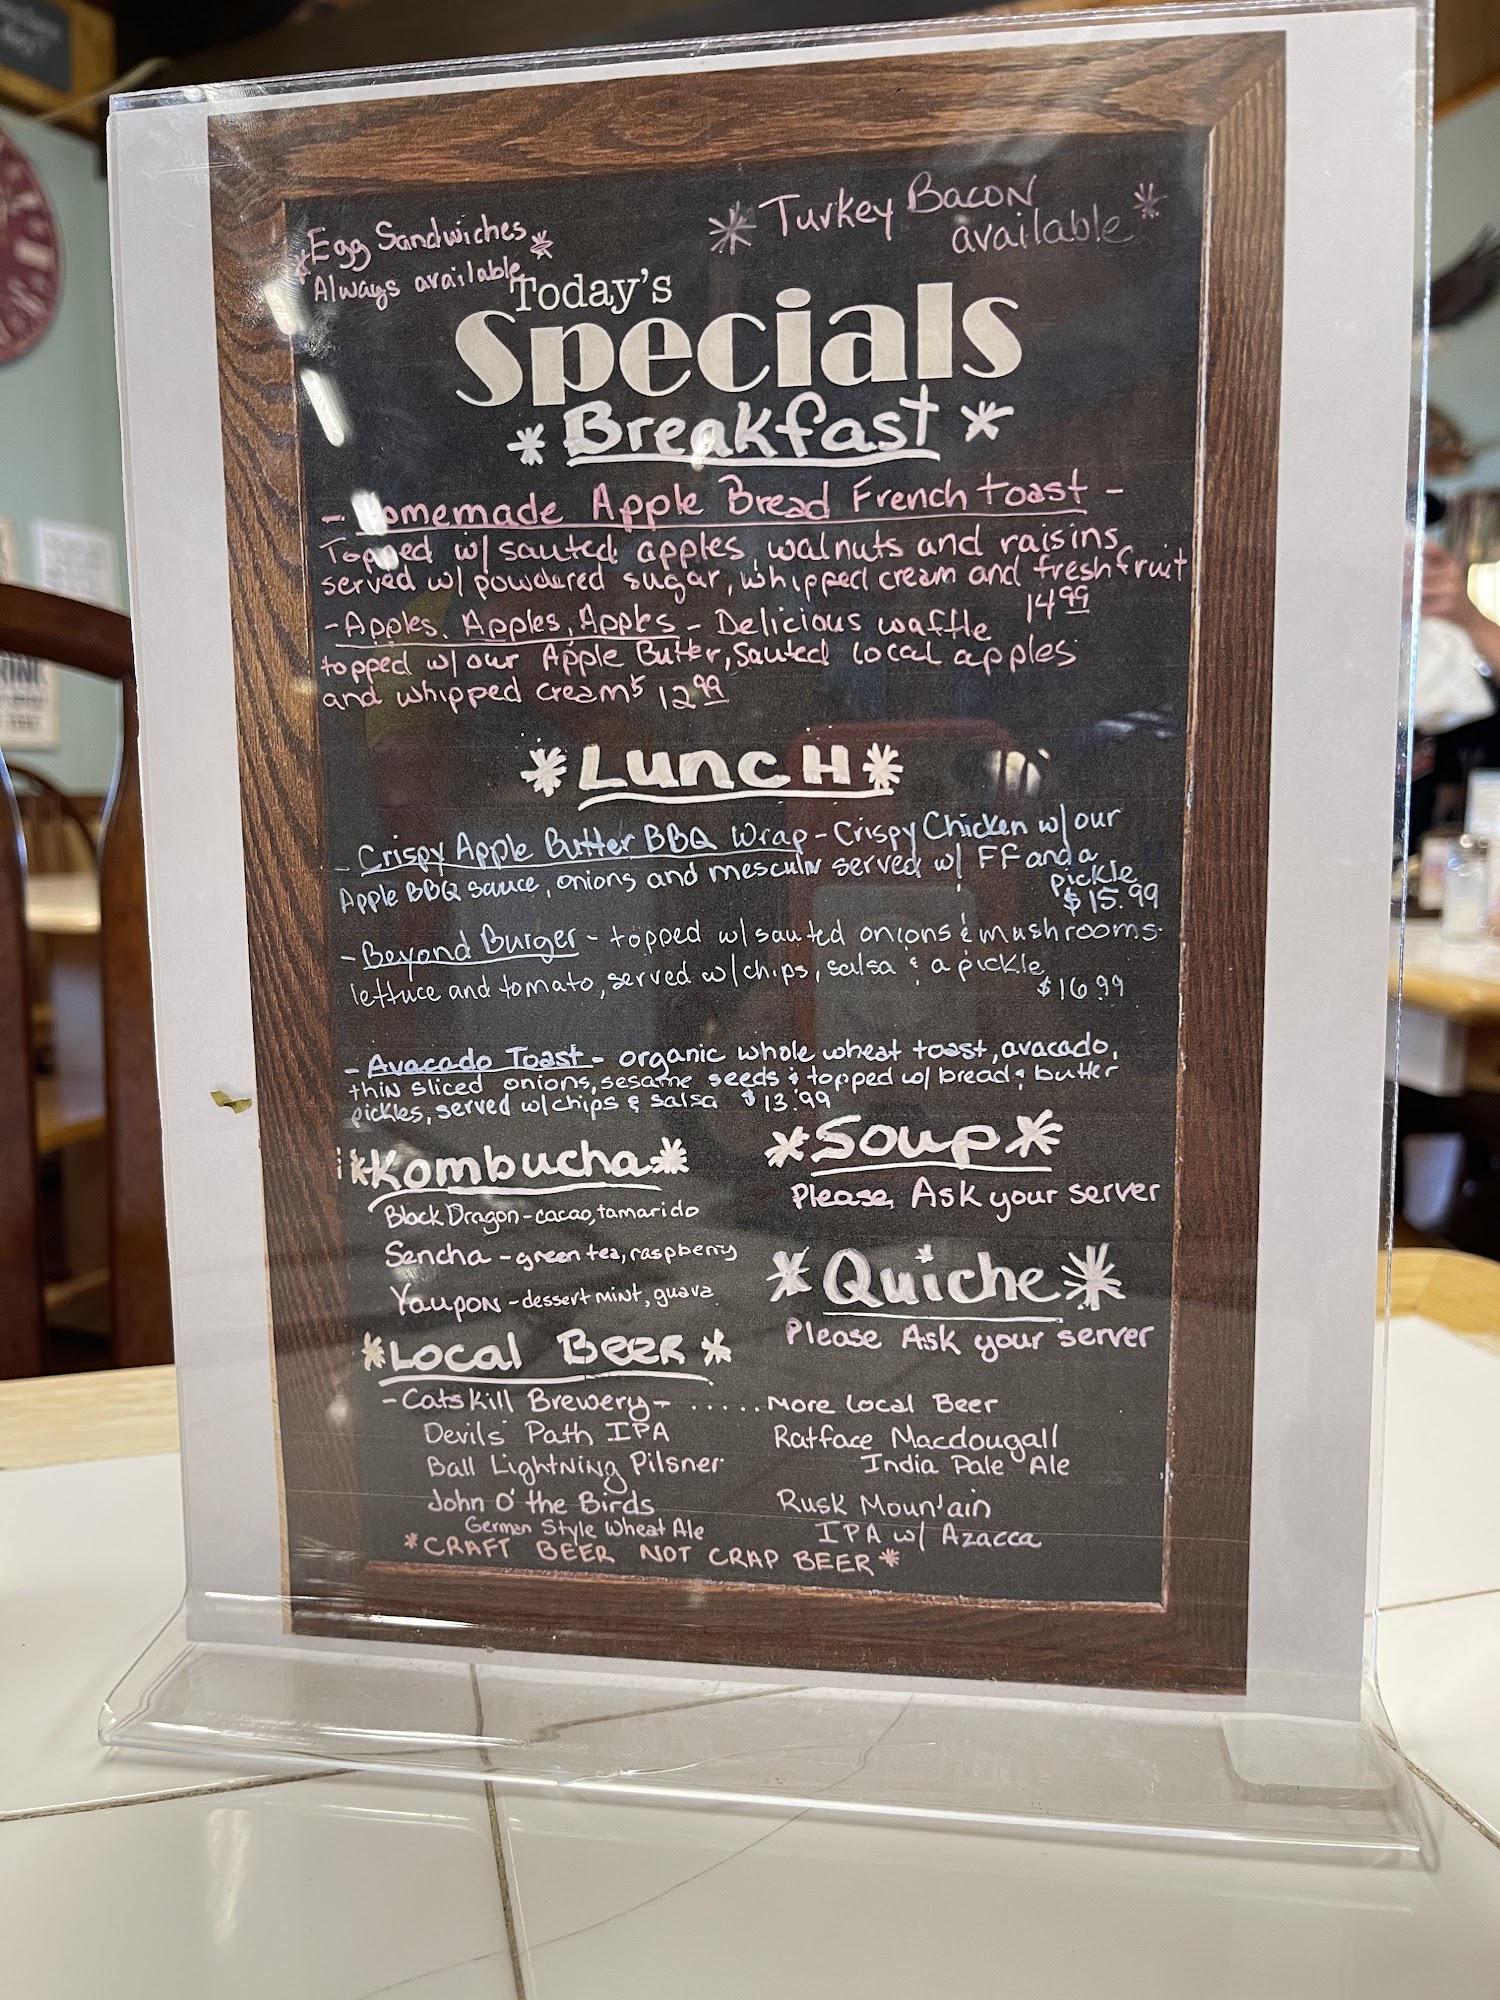 *Egg Sandwiches*
Always available
*Turkey Bacon
available*
Today's
Specials
*Breakfast*
- Homemade Apple Bread French toast -
Topped w/ sauted apples, walnuts and raisins,
served w/ powdered sugar, whipped cream and fresh fruit
14.99
- Apples, Apples, Apples - Delicious waffle
topped w/ our Apple Butter, Sauted local apples
and whipped cream 12.99
*Lunch*
- Crispy Apple Butter BBQ Wrap - Crispy Chicken w/ our
Apple BBQ sauce, onions and served w/ FF and a
pickle
$15.99
- Beyond Burger - topped w/ sauted onions & mushrooms.
lettuce and tomato, served w/ chips, salsa & a pickle
$16.99
- Avocado Toast - organic whole wheat toast, avocado,
thin sliced onions, sesame seeds & topped w/ bread & butter
pickles, served w/ chips & salsa $13.99
*Kombucha*
Black Dragon - cacao, tamarido
Sencha - green tea, raspberry
Yaupon - dessert mint, guava
*Soup*
Please Ask your server
*Quiche*
Please Ask your server
*Local Beer*
- Catskill Brewery -
Devils Path IPA
Ball Lightning Pilsner
John O' the Birds
German Style Wheat Ale
..... More Local Beer
Ratface Macdougall
India Pale Ale
Rusk Moun'ain
IPA w/ Azacca
*CRAFT BEER NOT CRAP BEER*